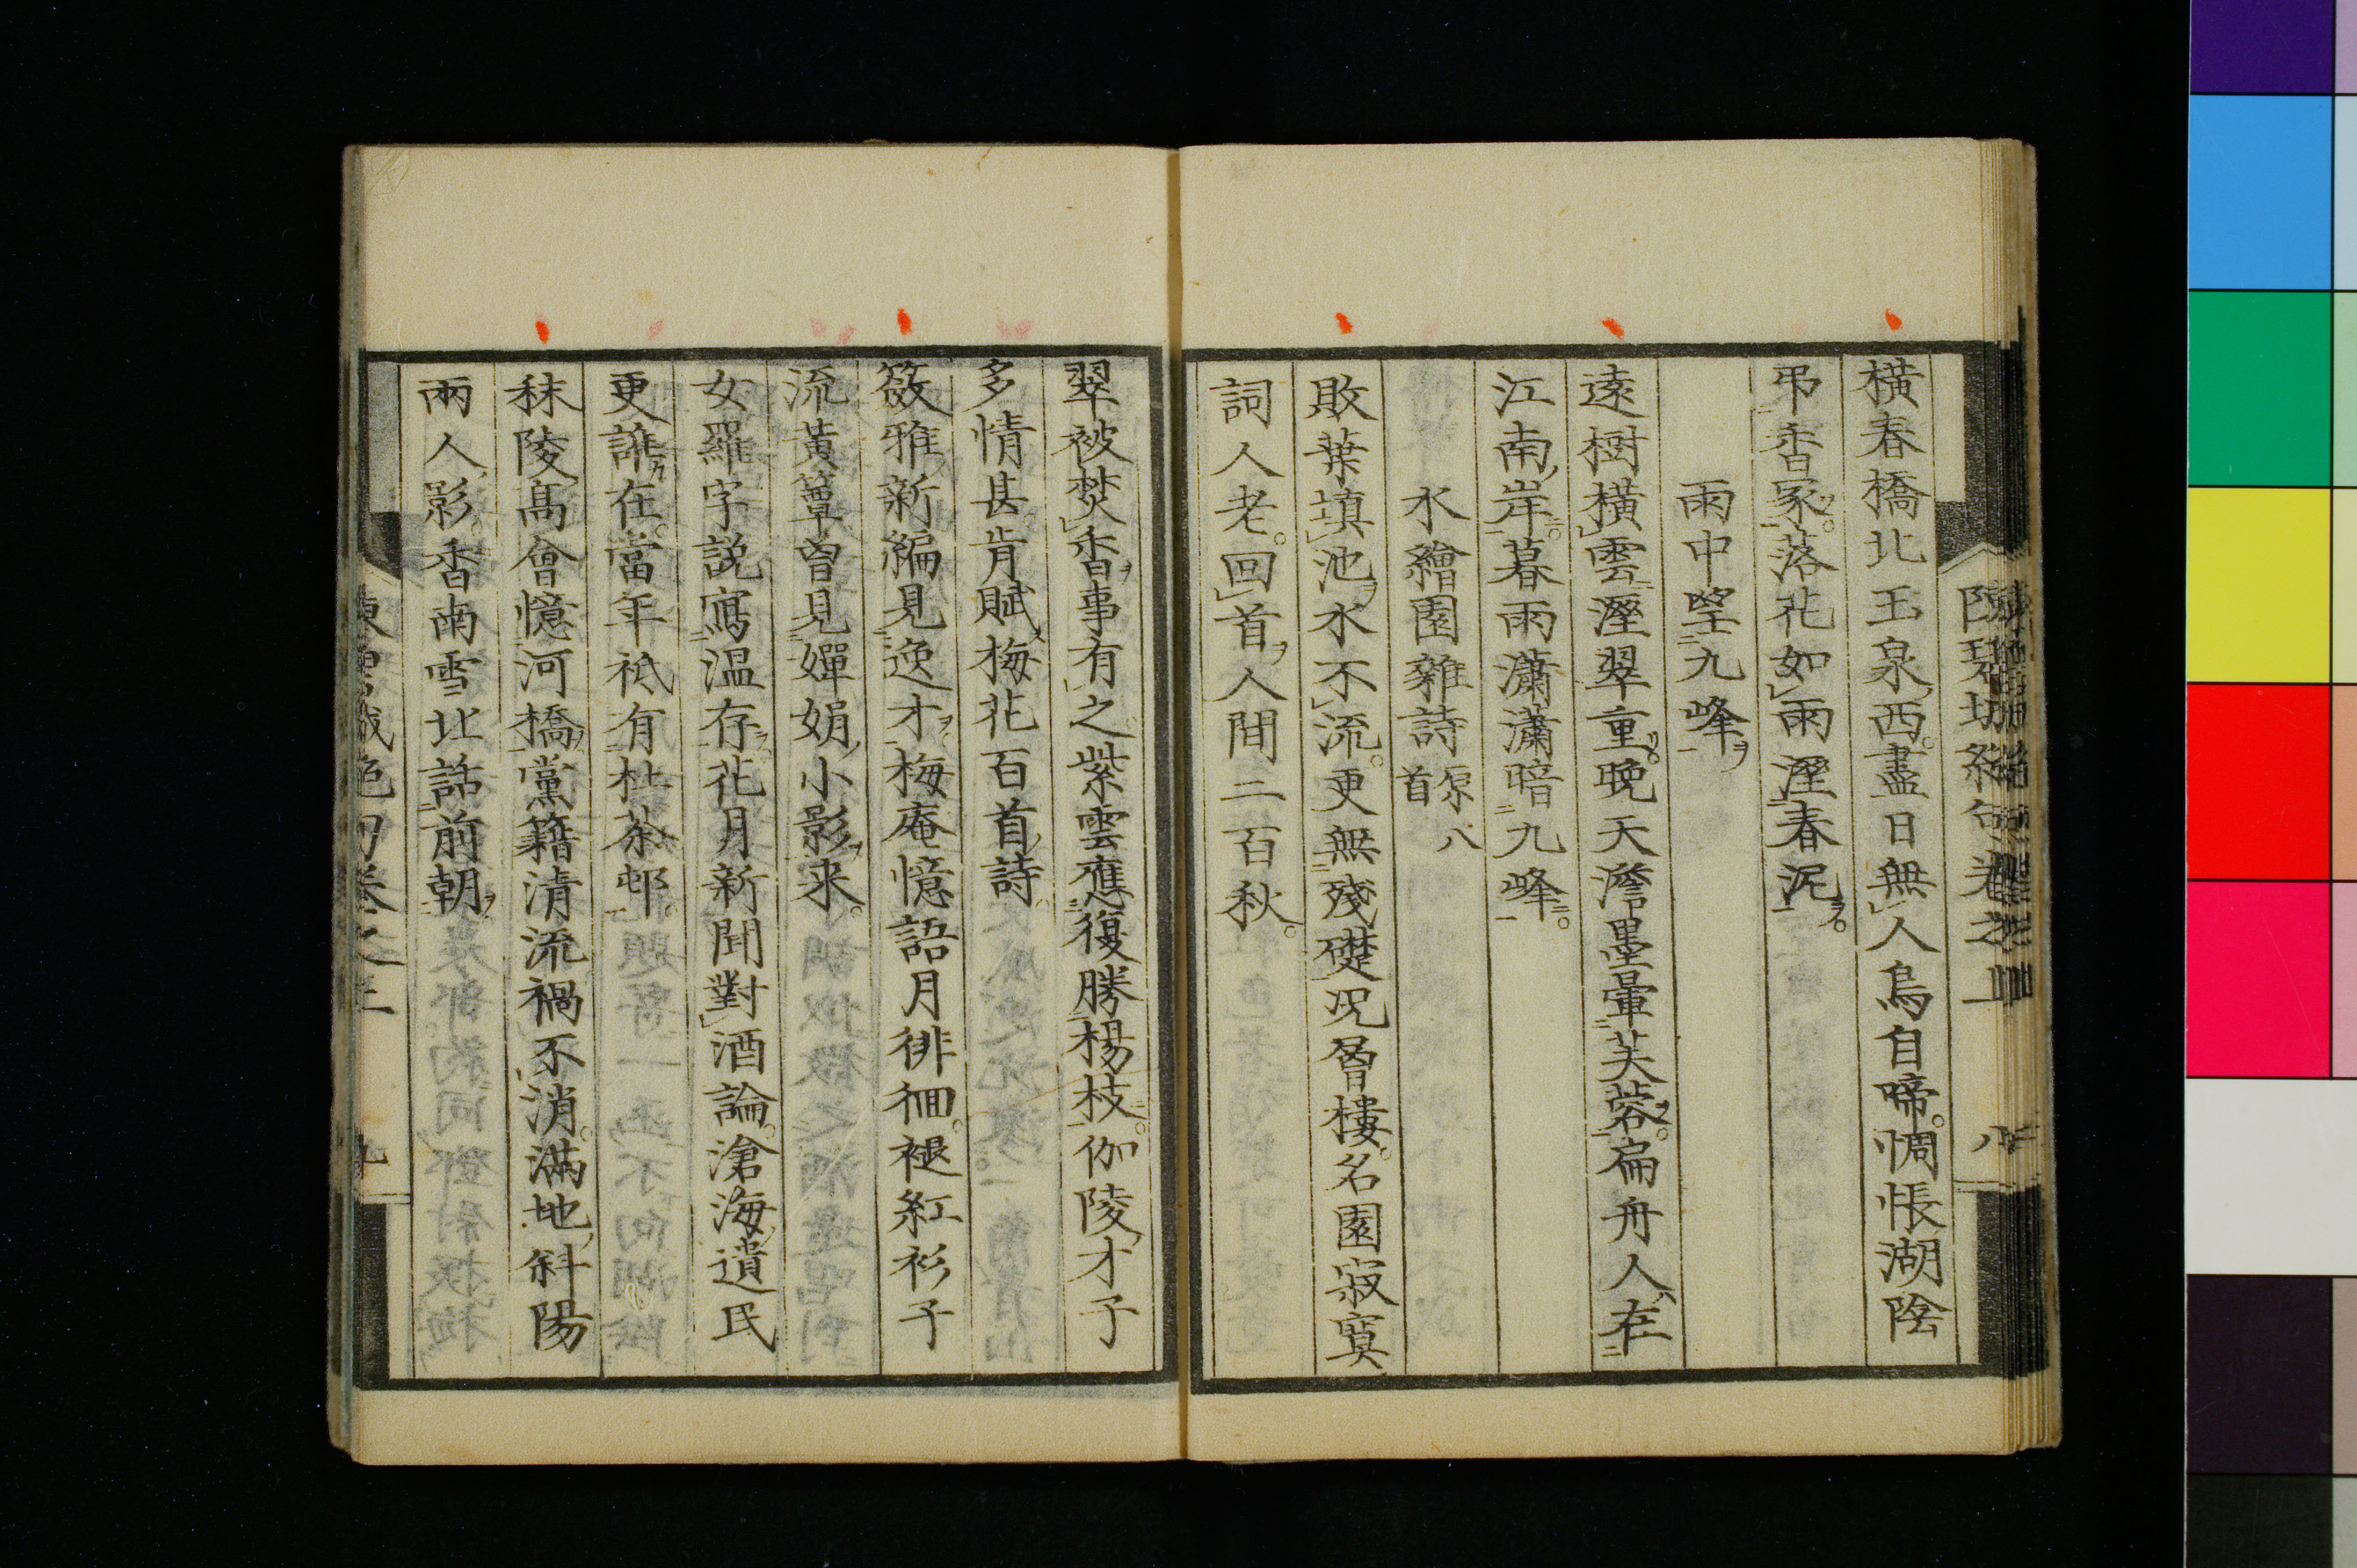 橫春橋北玉泉西。盡日無人鳥自啼。惆悵湖陰
弔香冢。落花如雨溼春泥。
雨中望九峰
遠樹橫雲溼翠重。晚天澹墨暈芙蓉。扁舟人在
江南岸。暮雨瀟瀟暗九峰。
水繪園雜詩原八首
敗葉填池水不流。更無殘礎況曾樓。名園寂寞
詞人老。回首人間二百秋。
陳碧城絕句卷之上
八
翠被焚香事有之。紫雲應復勝楊枝。伽陵才子
多情甚。肯賦梅花百首詩。
簽雅新編見逸才。梅庵憶語月徘徊。褪紅衫子
流黃簟。曾見嬋娟小影来。
女羅字説寫温存。花月新聞對酒論。滄海遺民
更誰在。當年祇有杜茶邨。
秣陵高會憶河橋。黨籍清流禍不消。滿地斜陽
兩人影。香南雪北話前朝。